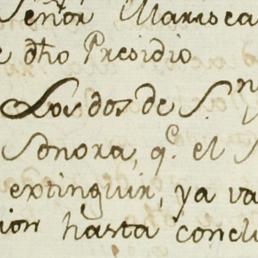 Señor Marisca
e dho Presidio
Los dos de S.n
Sonora, q.e el S
extinguir, ya va
ion hasta conclu